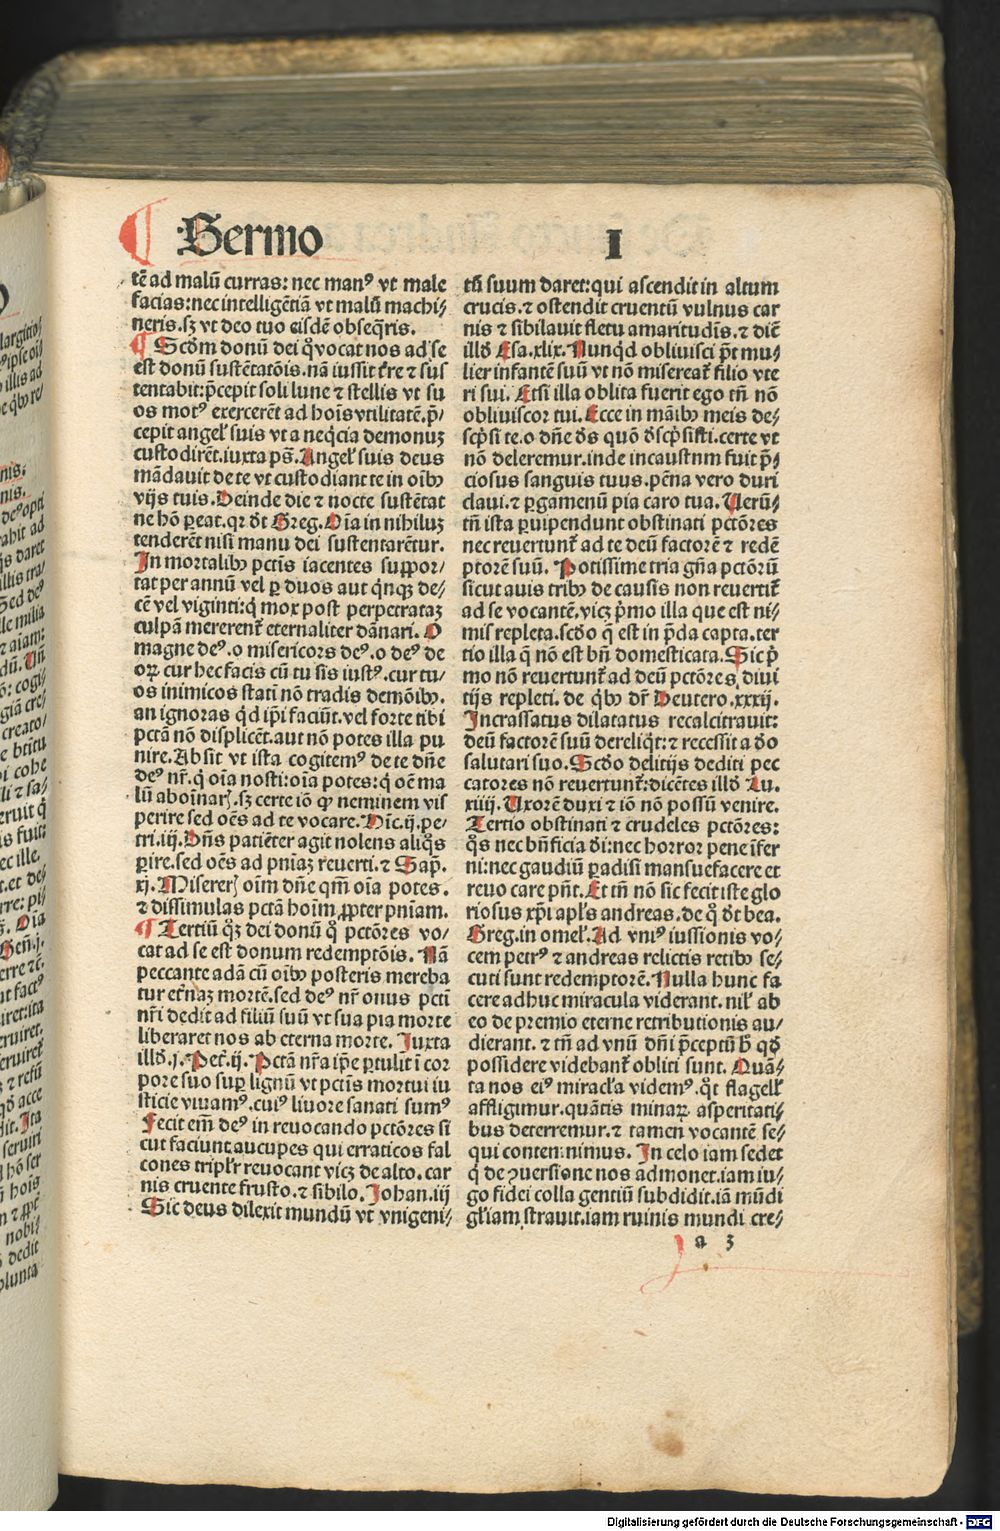 Sermo I
tē ad malū curras: nec manꝰ vt male
facias: nec intelligētiā vt malū machi⸗
neris. sꝫ vt deo tuo eisdē obseq̄ris.
¶ Scd̄m donū dei q̊ vocat nos ad se
est donū sustētatōis. nā iussit t̄re ⁊ sus
tentabit: p̄cepit soli lune ⁊ stellis vt su
os motꝰ exercerēt ad hoīs vtilitatē. p̄⸗
cepit angeł suis vt a neq̇cia demonuꝫ
custodirēt. iuxta ps̄. Angeł suis deus
mādauit de te vt custodiant te in oībꝰ
vijs tuis. Deinde die ⁊ nocte sustētat
ne hō ꝑeat. qꝛ d̄t Greg. Oīa in nihiluꝫ
tenderēt nisi manu dei sustentarētur.
In mortalibꝰ pctīs iacentes suꝓpor⸗
tat per annū vel ꝑ duos aut q̇nqꝫ de⸗
cē vel viginti: q̇ mox post perpetrataꝫ
culpā mererent̄ eternaliter dānari. O
magne deꝰ. o misericors deꝰ. o deꝰ de
oꝝ cur hec facis cū tu sis iustꝰ. cur tu⸗
os inimicos statī nō tradis demōibꝰ.
an ignoras q̇d ip̄i faciūt. vel forte tibi
pctā nō displicēt. aut nō potes illa pu
nire. Absit vt ista cogitemꝰ de te dn̄e
deꝰ nr̄. q̇ oīa nosti: oīa potes: q̇ oē ma
lū aboīnarꝭ. sꝫ certe iō ꝙ neminem vis
perire sed oēs ad te vocare. Hīc. ij. pe⸗
tri. iij. Dn̄s patiēter agit nolens aliq̊s
ꝑire. sed oēs ad pn̄iaꝫ reuerti. ⁊ Sap̄.
xj. Misererꝭ oīm dn̄e qm̄ oīa potes.
⁊ dissimulas pctā hoīm ꝓpter pn̄iam.
¶ Tertiū q̊ꝫ dei donū q̊ pctōres vo⸗
cat ad se est donum redemptōis. Nā
peccante adā cū oībꝰ posteris mereba
tur et̄naꝫ mortē. sed deꝰ nr̄ onus pctī
nr̄i dedit ad filiū suū vt sua pia morte
liberaret nos ab eterna morte. Iuxta
illđ. j. Pet̄. ij. Pctā nr̄a ip̄e ꝑtulit ī cor
pore suo suꝑ lignū vt pctīs mortui iu
sticie viuamꝰ. cuiꝰ liuore sanati sumꝰ
Fecit em̄ deꝰ in reuocando pctōres si
cut faciunt aucupes qui erraticos fal
cones tripłr reuocant vicꝫ de alto. car
nis cruente frusto. ⁊ sibilo. Johan. iij
Sic deus dilexit mundū vt vnigeni⸗
tū suum daret: qui ascendit in altum
crucis. ⁊ ostendit cruentū vulnus car
nis ⁊ sibilauit fletu amaritudīs. ⁊ dic̄
illđ Esa. xlix. Nunq̇d obliuisci p̄t mu⸗
lier infantē suū vt nō misereat̄ filio vte
ri sui. Etsi illa oblita fuerit ego tn̄ nō
obliuiscor tui. Ecce in māibꝰ meis de⸗
scp̄si te. o dn̄e d̄s quō d̄scp̄sisti. certe vt
nō deleremur. inde incaustnm fuit p̄⸗
ciosus sanguis tuus. pēna vero duri
claui. ⁊ ꝑgamenū pia caro tua. Uerū⸗
tn̄ ista ꝑuipendunt obstinati pctōres
nec reuertunt̄ ad te deū factorē ⁊ redē
ptorē suū. Potissime tria gn̄a pctōrū
sicut auis tribꝰ de causis non reuertit̄
ad se vocantē. vicꝫ p̊mo illa que est ni⸗
mis repleta. scđo q̄ est in p̄da capta. ter
tio illa q̄ nō est bn̄ domesticata. Sic p̊
mo nō reuertunt̄ ad deū pctōres diui
tijs repleti. de q̇bꝰ dr̄ Deutero. xxxij.
Incrassatus dilatatus recalcitrauit:
deū factorē suū dereliq̇t: ⁊ recessit a đo
salutari suo. Scđo delitijs dediti pec
catores nō reuertunt̄: dicētes illđ Lu.
xiiij. Uxorē duxi ⁊ iō nō possū venire.
Tertio obstinati ⁊ crudeles pctōres:
q̊s nec bn̄ficia đi: nec horror pene īfer
ni: nec gaudiū ꝑadisi mansuefacere et
reuo care pn̄t. Et tn̄ nō sic fecit iste glo
riosus xp̄i apłs andreas. de q̊ đt bea.
Greg. in omeł. Ad vniꝰ iussionis vo⸗
cem petrꝰ ⁊ andreas relictis retibꝰ se⸗
cuti sunt redemptorē. Nulla hunc fa
cere adhuc miracula viderant. nił ab
eo de premio eterne retributionis au⸗
dierant. ⁊ tn̄ ad vnū dn̄i p̄ceptū h̄ qđ
possidere videbant̄ obliti sunt. Quā⸗
ta nos eiꝰ miracła videmꝰ. q̊t flageł
affligimur. quātis minaꝝ asperitati⸗
bus deterremur. ⁊ tamen vocantē se⸗
qui contemnimus. In celo iam sedet
q̇ de ꝯuersione nos admonet. iam iu⸗
go fidei colla gentiū subdidit. iā mūdi
głiam strauit. iam ruinis mundi cre⸗
a 3
Digitalisierung gefördert durch die Deutsche Forschungsgemeinschaft - DFG